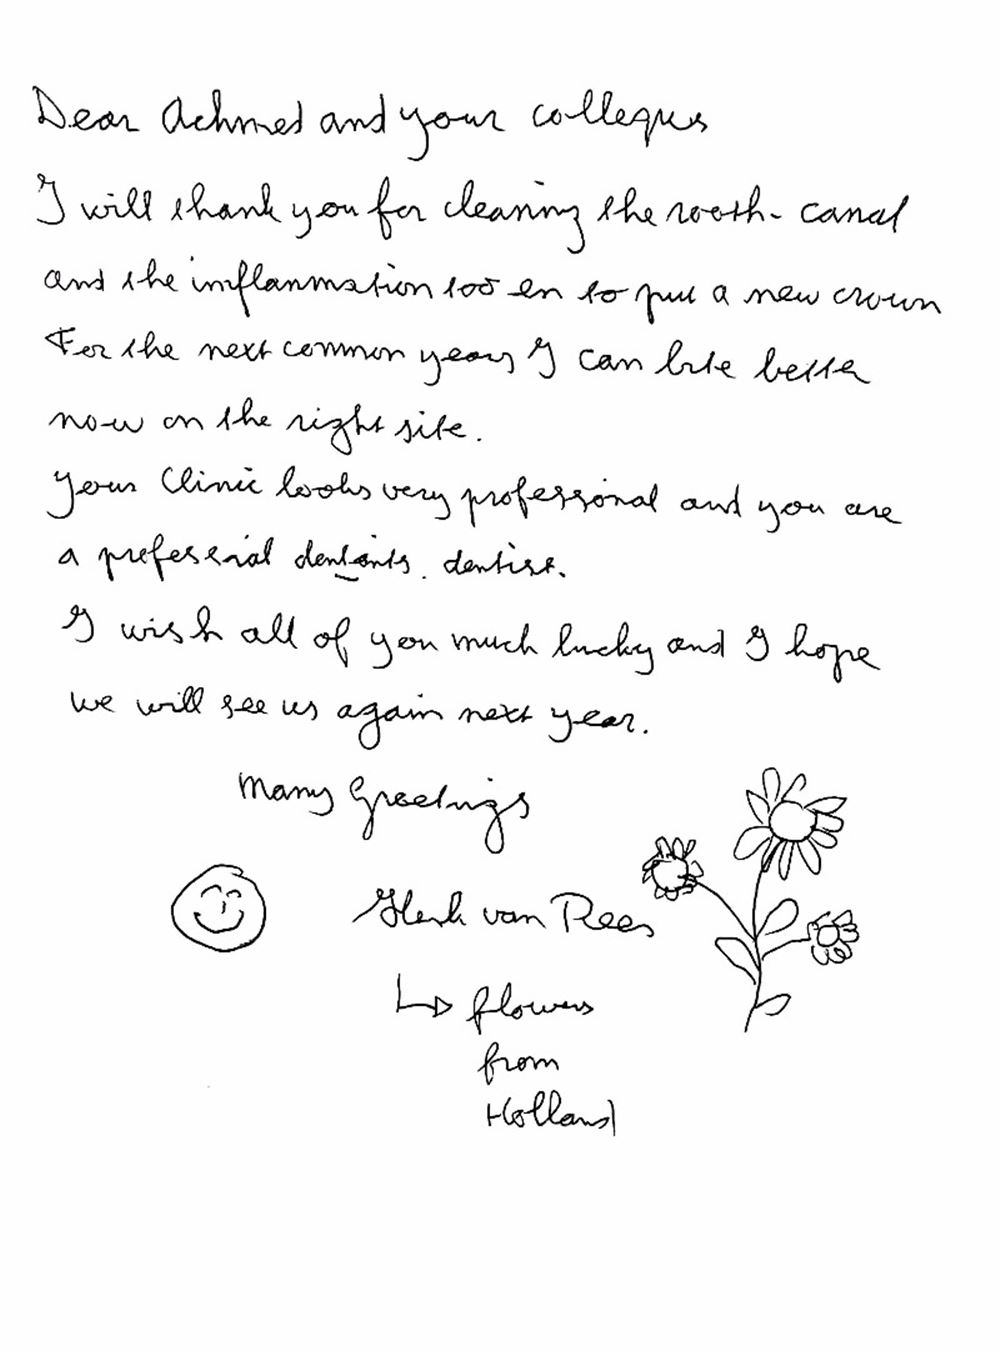 Dear Achmed and your colleques
I will thank you for cleaning the rooth-canal
and the inflanmation too en to put a new crown
For the next common years I can bite better
now on the right site.
Your Clinic looks very professional and you are
a professial dentants. dentist.
I wish all of you much lucky and I hope
we will see us again next year.
Many Greetings
Henk van Rees
flowers
from
Holland